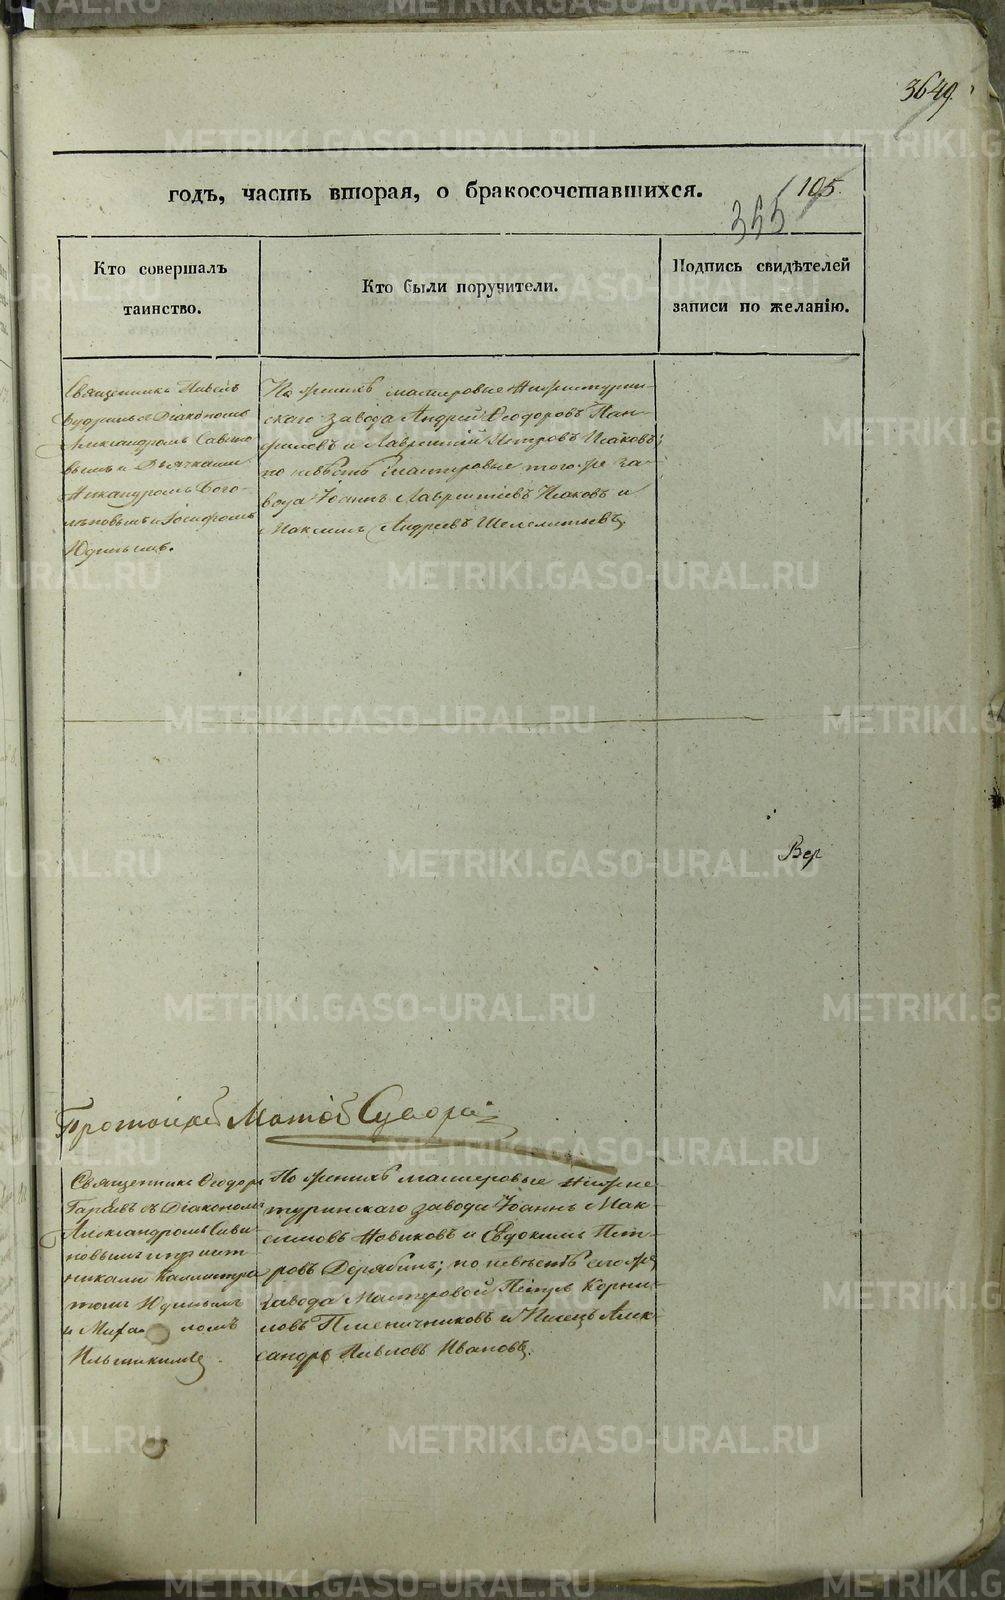 3649.
годъ, часть вторая, о бракосочетавшихся.
105.
355
Кто совершалъ
таинство.
Кто были поручители.
Подпись свидѣтелей
записи по желанію.
Священникъ Павелъ
съ Діакономъ
Александромъ Сави-
новымъ и Дьячками
Никандромъ Бого-
лѣповымъ и Іосифомъ
Юдинымъ.
По женихѣ мастеровые Нижнетурин-
скаго завода Андрей Ѳеодоровъ Пан-
филовъ и Лаврентій Петровъ Исаковъ;
по невѣстѣ мастеровые того же за-
вода Іоаннъ Лаврентіевъ Исаковъ и
Максимъ Андреевъ Шелементьевъ.
Вер
Протоіерей
Священникъ Ѳеодоръ
съ Діакономъ
Александромъ Сави-
новымъ и причет-
никами Каллистра-
томъ
и
По женихѣ мастеровые Нижне-
туринскаго завода Іоаннъ Мак-
симовъ Новиковъ и Евдокимъ Пет-
ровъ Дерябинъ; по невѣстѣ того же
завода Мастеровой Петръ Корни-
ловъ Пшеничниковъ и Писецъ Алек-
сандръ Павловъ Ивановъ.
METRIKI.GASO-URAL.RU